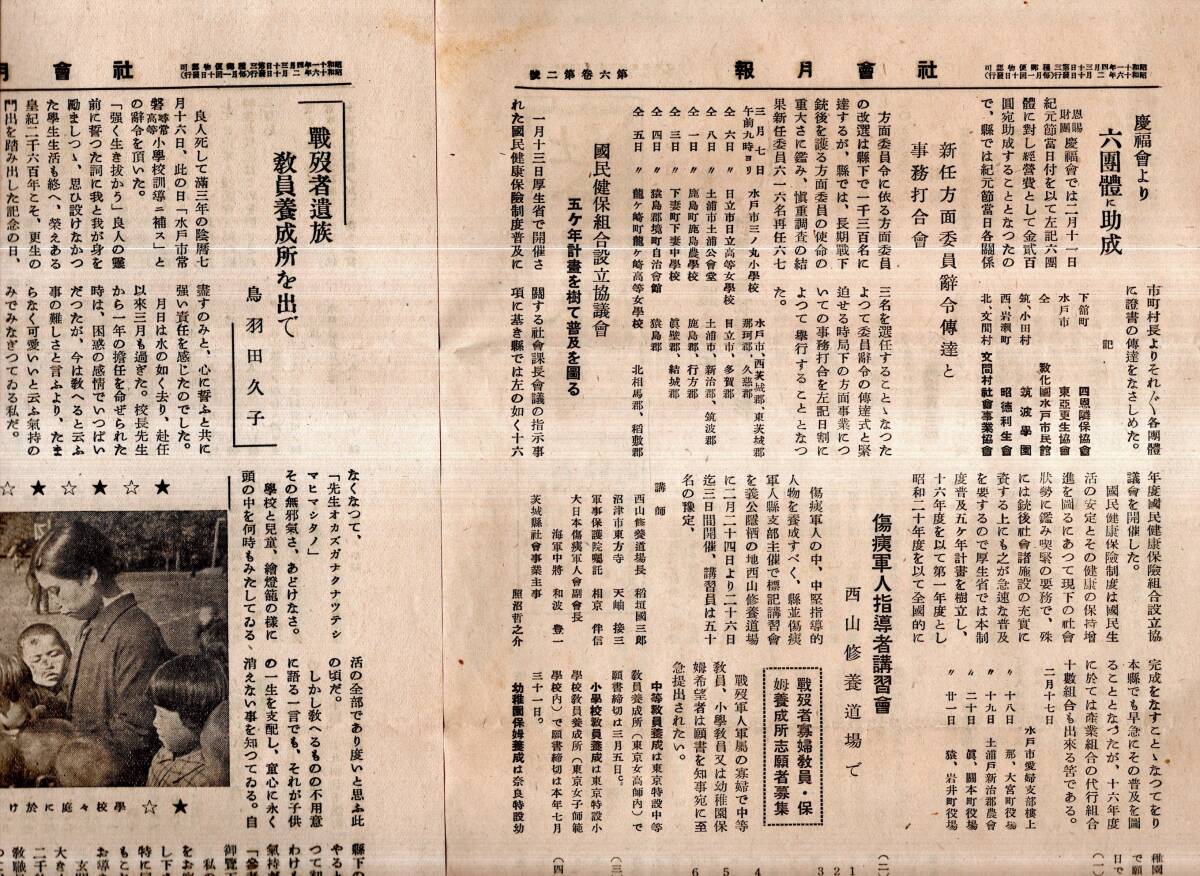 第六卷第二號
社會月報
昭和十一年四月三十日第三種郵便物認可
昭和十六年二月十日發行(每月一回十日發行)
慶福會より
六團體に助成
恩賜
財團慶福會では二月十一日
紀元節當日付を以て左記六團
體に對し經營費として金貳百
圓宛助成することとなつたの
で、縣では紀元節當日各關係
市町村長よりそれ〴〵各團體
に證書の傳達をなさしめた。
記
下館町 四恩隣保協會
水戸市 東亞更生協會
仝 敎化團水戸市民館
筑、小田村 筑波學園
西、岩瀬町 昭德利生會
北、文間村 文間村社會事業協會
新任方面委員辭令傳達と
事務打合會
方面委員令に依る方面委員
の改選は縣下で一千三百名に
達するが、縣では、長期戰下
銃後を護る方面委員の使命の
重大さに鑑み、愼重調査の結
果新任委員六一六名再任六七
三名を選任することゝなつた
よつて委員辭令の傳達式と緊
迫せる時局下の方面事業につ
いての事務打合を左記日割に
よつて擧行することとなつ
た。
三月七日 水戸市三ノ丸小學校 水戸市、西茨城郡、東茨城郡
午前九時ヨリ 那珂郡、久慈郡
仝 六日 〃 日立市日立高等女學校 日立市、多賀郡
仝 八日 〃 土浦市土浦公會堂 土浦市、新治郡、筑波郡
仝 一日 〃 鹿島町鹿島農學校 鹿島郡、行方郡
仝 三日 〃 下妻町下妻中學校 眞壁郡、結城郡
仝 四日 〃 猿島郡境町自治會館 猿島郡
仝 五日 〃 龍ケ崎町龍ケ崎高等女學校 北相馬郡、稻敷郡
國民健保組合設立協議會
五ケ年計畫を樹て普及を圖る
一月十三日厚生省で開催さ
れた國民健康保險制度普及に
關する社會課長會議の指示事
項に基き縣では左の如く十六
年度國民健康保險組合設立協
議會を開催した。
國民健康保險制度は國民生
活の安定とその健康の保持增
進を圖るにあつて現下の社會
狀勢に鑑み喫緊の要務で、殊
には銃後社會諸施設の充實に
資する上にも之が急速な普及
を要するので厚生省では本制
度普及五ケ年計畫を樹立し、
十六年度を以て第一年度とし
昭和二十年度を以て全國的に
完成をなすことゝなつてをり
本縣でも早急にその普及を圖
ることとなつたが、十六年度
に於ては產業組合の代行組合
十數組合も出來る筈である。
二月十七日
水戸市愛婦支部樓上
〃 十八日 那、大宮町役場
〃 十九日 土浦戸新治郡農會
〃 二十日 眞、關本町役場
〃 廿一日 猿、岩井町役場
傷痍軍人指導者講習會
西山修養道場で
傷痍軍人の中、中堅指導的
人物を養成すべく、縣並傷痍
軍人縣支部主催で標記講習會
を義公隱栖の地西山修養道場
に二月二十四日より二十六日
迄三日間開催、講習員は五十
名の豫定、
講師
西山修養道場長 稻垣國三郎
沼津市東方寺 天岫 接三
軍事保護院囑託 相京 伴信
大日本傷痍軍人會副會長
海軍中將 和波 豊一
茨城縣社會事業主事
照沼哲之介
戰歿者寡婦敎員・保
姆養成所志願者募集
戰歿軍人軍屬の寡婦で中等
敎員、小學敎員又は幼稚園保
姆希望者は願書を知事宛に至
急提出されたい。
中等敎員養成は東京特設中等
敎員養成所(東京女高師內)で
願書締切は三月五日。
小學校敎員養成は東京特設小
學校敎員養成所(東京女子師範
學校內)で願書締切は本年七月
三十一日。
幼稚園保姆養成は奈良特設幼
稚園
社會月
昭和十一年四月三十日第三種郵便物認可
昭和十六年二月十日發行(每月一回十日發行)
戰歿者遺族
敎員養成所を出て
鳥羽田久子
良人死して滿三年の陰曆七
月十六日、此の日「水戸市常
磐尋常高等小學校訓導ニ補ス」と
の辭令を頂いた。
「强く生き拔かう」良人の靈
前に誓つた詞に我と我が身を
勵ましつゝ、思ひ設けなかつ
た學生生活も終へ、榮えある
皇紀二千六百年こそ、更生の
門出を踏み出した記念の日、
盡すのみと、心に誓ふと共に
强い責任を感じたのでした。
月日は水の如く去り、赴任
以來三月も過ぎた。校長先生
から一年の擔任を命ぜられた
時は、困惑の感情でいつぱい
だつたが、今は敎へると云ふ
事の難しさと言ふより、たま
らなく可愛いいと云ふ氣持の
みでみなぎつてゐる私だ。
なくなつて、
「先生オカズガナクナツテシ
マヒマシタノ」
その無邪氣さ、あどけなさ。
學校と兒童、繪燈籠の樣に
頭の中を何時もみたしてゐる
活の全部であり度いと思ふ此
の頃だ。
しかし敎へるものの不用意
に語る一言でも、それが子供
の一生を支配し、童心に永く
消えない事を知つてゐる。自
☆★☆★☆★
★☆ 學校々庭に於け